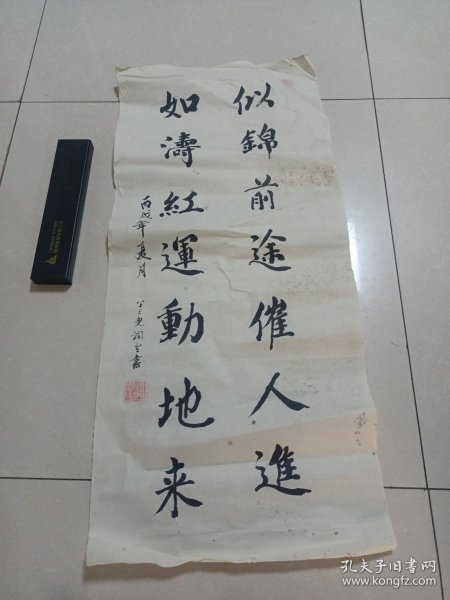 似錦前途催人進
如濤紅運動地来
丙戌年夏月
孔夫子旧书网
www.kongfz.com